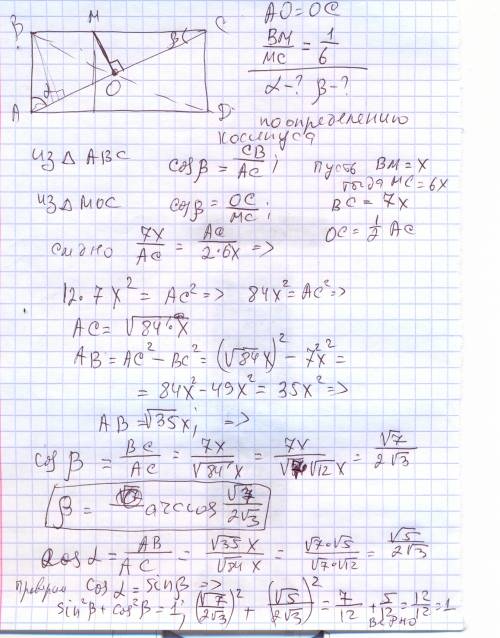 B M C
β
AO = OC
BM/MC = 1/6
α
O
α - ? β - ?
A D
по определению
косинуса
из △ ABC cosβ = CB/AC; пусть BM = x
тогда MC = 6x
из △ MOC cosβ = OC/MC; BC = 7x
OC = 1/2 AC
7x/AC = AC/2·6x =>
12·7x² = AC² => 84x² = AC² =>
AC = √84 x
AB = AC² - BC² = (√84 x)² - 7²x² =
= 84x² - 49x² = 35x² =>
AB = √35 x; =>
cosβ = BC/AC = 7x/√84 x = 7x/√7·√12 x = √7/2√3
β = arccos √7/2√3
cosα = AB/AC = √35 x/√84 x = √7·√5/√7·√12 = √5/2√3
проверим cosα = sinβ =>
sin²β + cos²β = 1; (√7/2√3)² + (√5/2√3)² = 7/12 + 5/12 = 12/12 = 1
верно